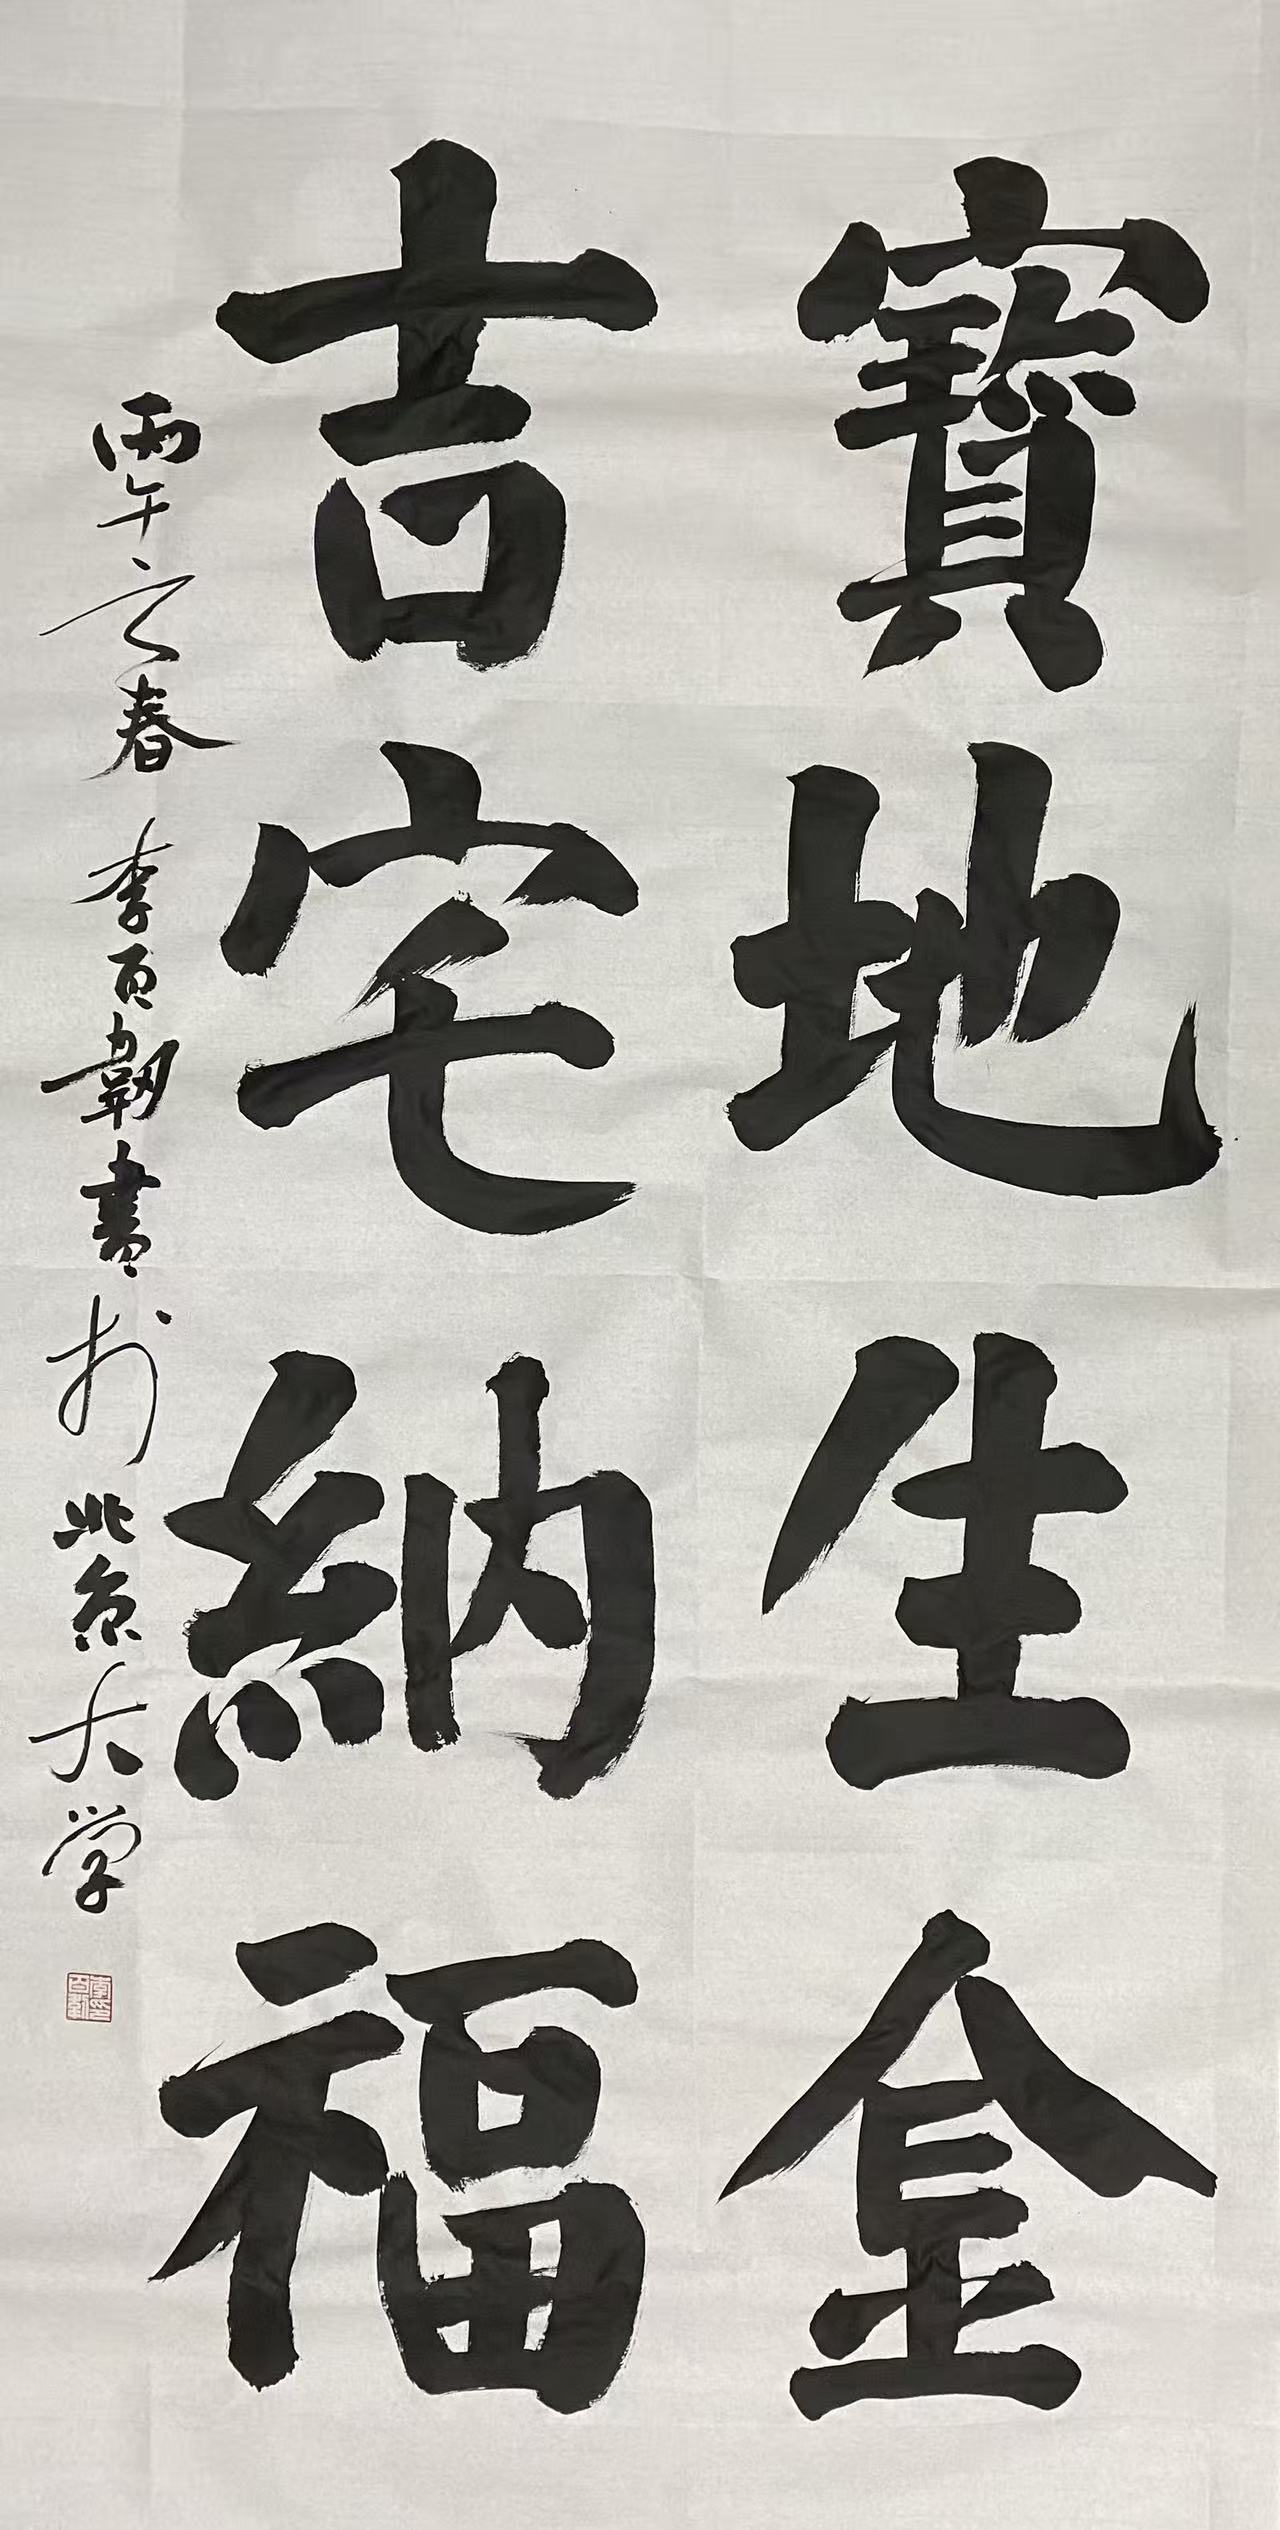 寶地生金
吉宅納福
丙午之春 李百韌書於北京大学